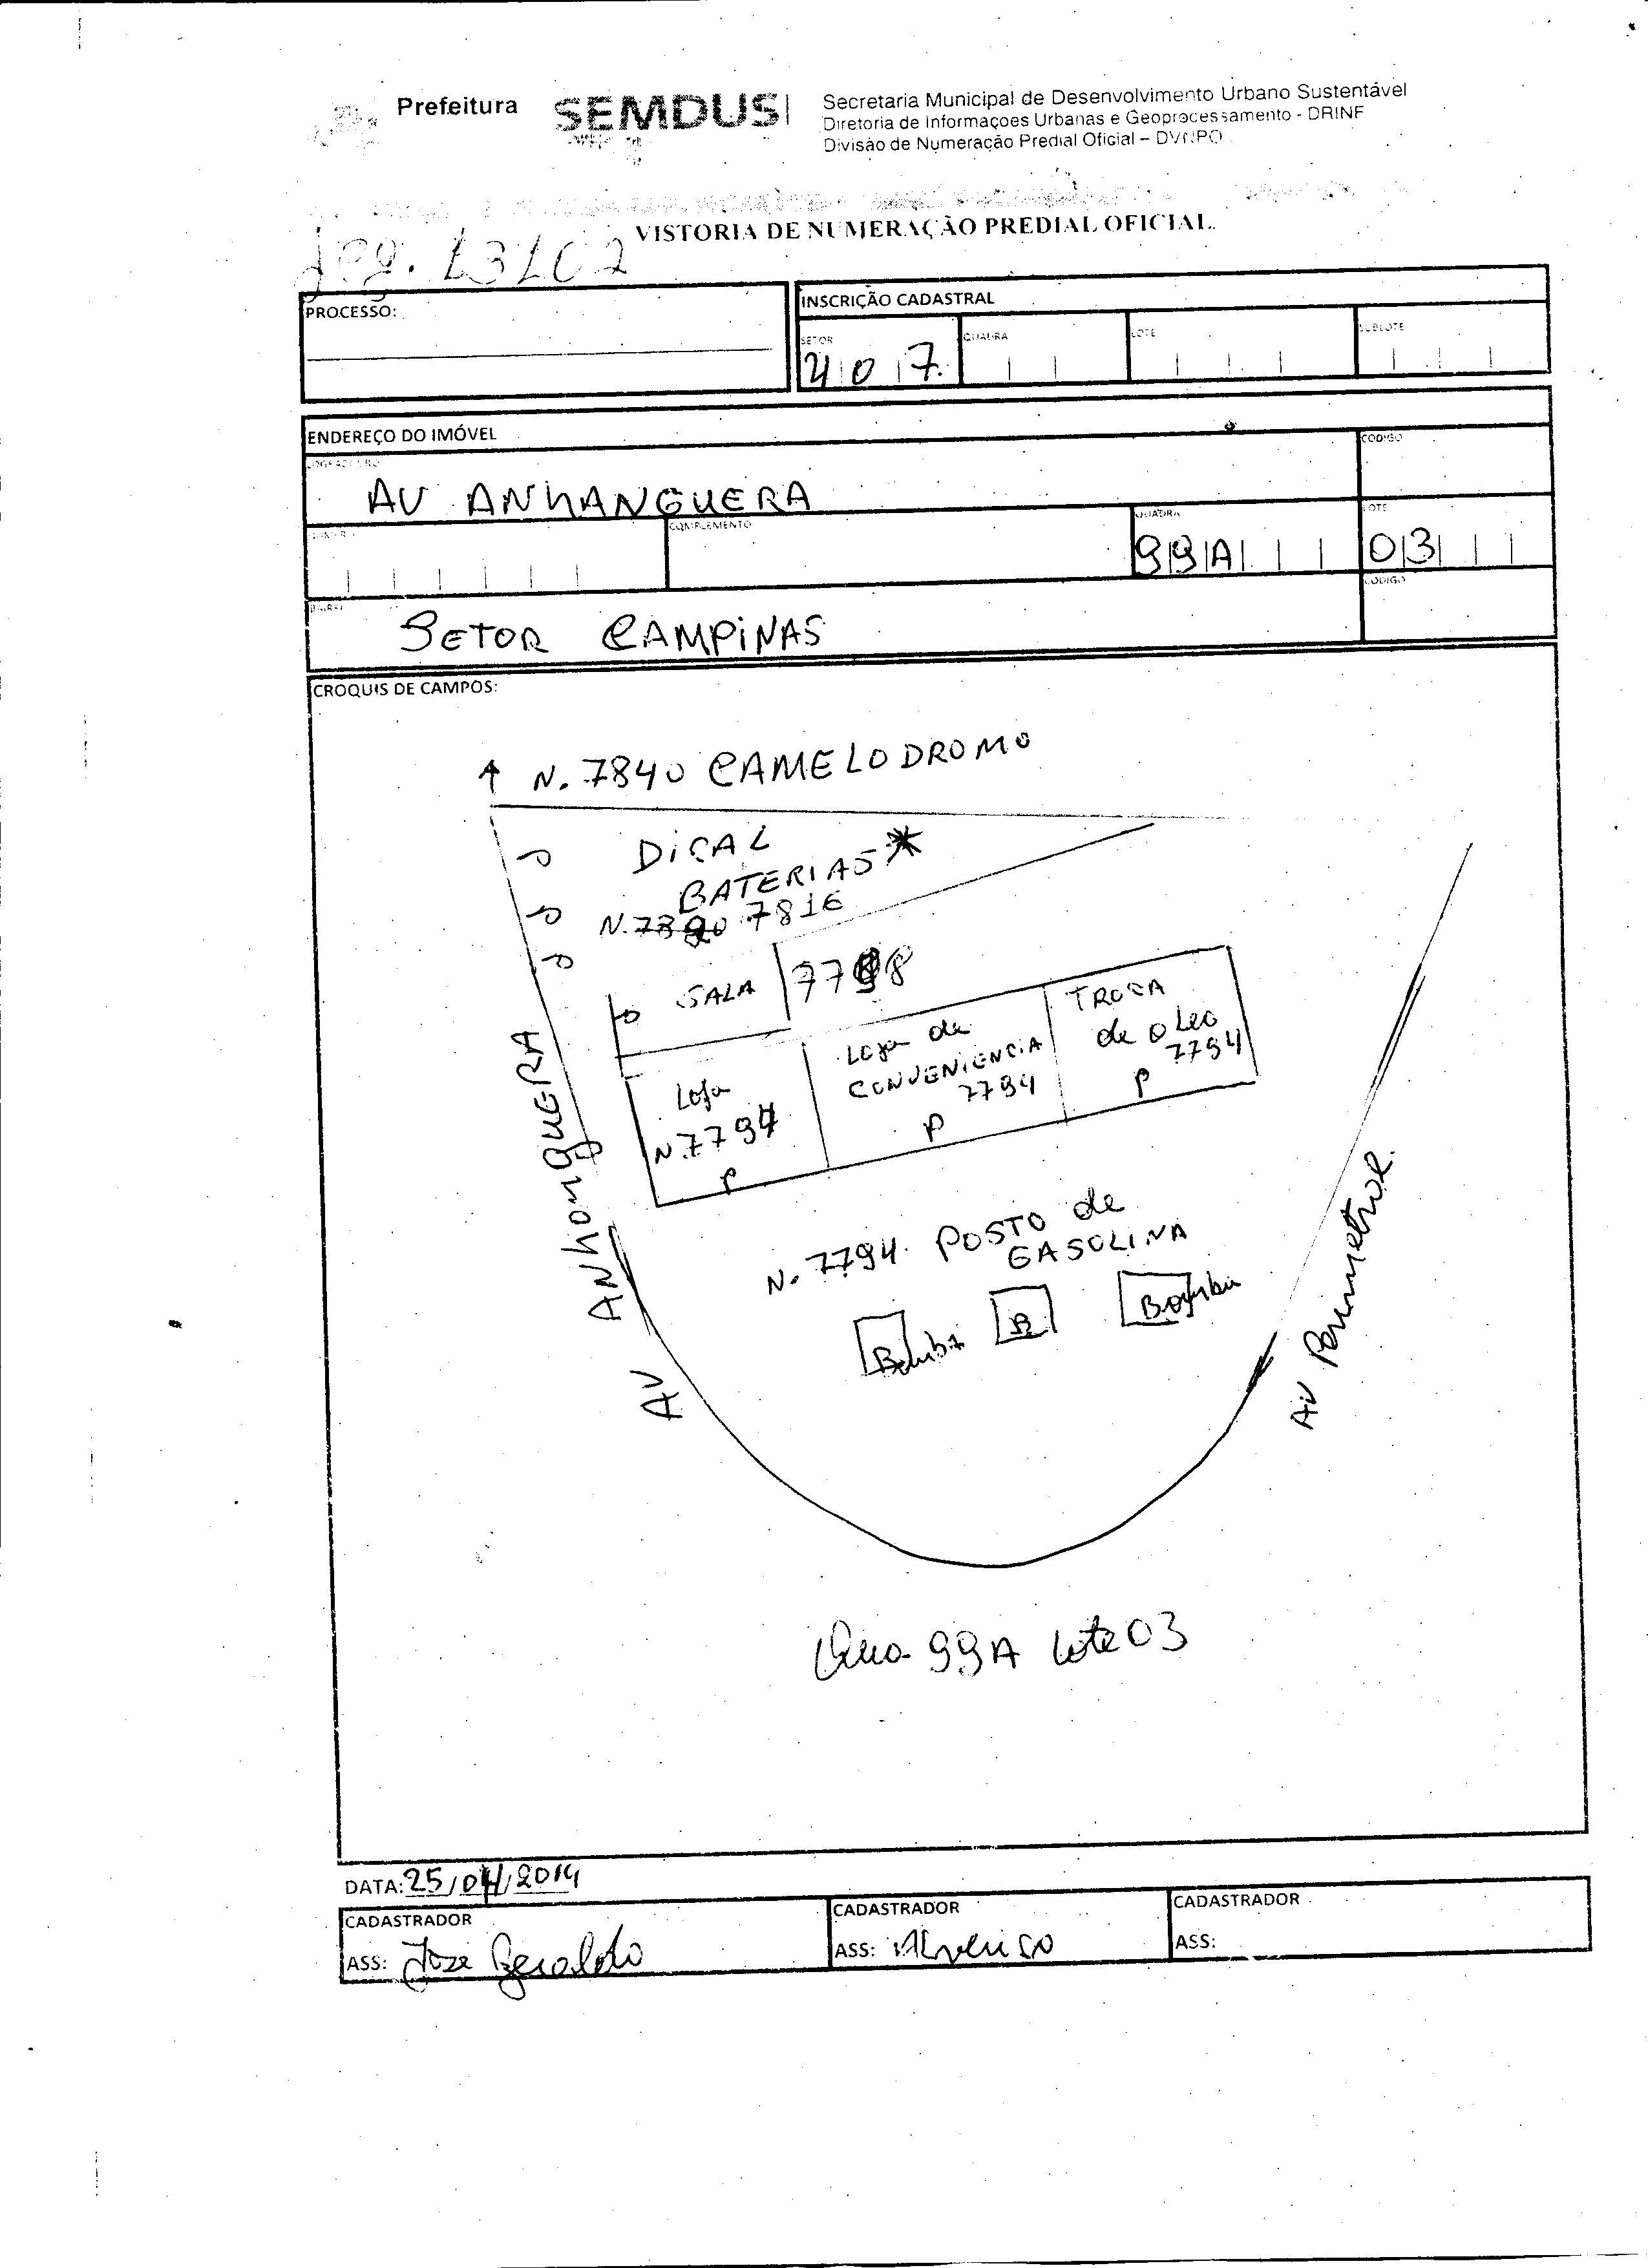 Prefeitura
SEMDUS
Secretaria Municipal de Desenvolvimento Urbano Sustentável
Diretoria de Informaçoes Urbanas e Geoprocessamento - DRINF
Divisão de Numeração Predial Oficial – DVNPO
VISTORIA DE NUMERAÇÃO PREDIAL OFICIAL.
PROCESSO:
INSCRIÇÃO CADASTRAL
SETOR
QUADRA
LOTE
SUBLOTE
407
ENDEREÇO DO IMÓVEL
LOGRADOURO
CODIGO
AV ANhANGUERA
COMPLEMENTO
QUADRA
LOTE
99A
03
BAIRRO
CODIGO
SETOR CAMPiNAS
CROQUIS DE CAMPOS:
N. 7840 CAMELODROMO
DiCAL
BATERIAS *
N. 7816
SALA
7798
TROCA
de oLeo
7794
P
Loja de
CONVENIENCiA
7794
P
Loja
N.7794
P
AV ANhanguERA
N. 7794. POSTO de
GASOLINA
Bomba
B
Bomba
AV Perimetral
99A Lote 03
DATA: 25/04/2014
CADASTRADOR
CADASTRADOR
CADASTRADOR
ASS: Joze Geraldo
ASS:
ASS: